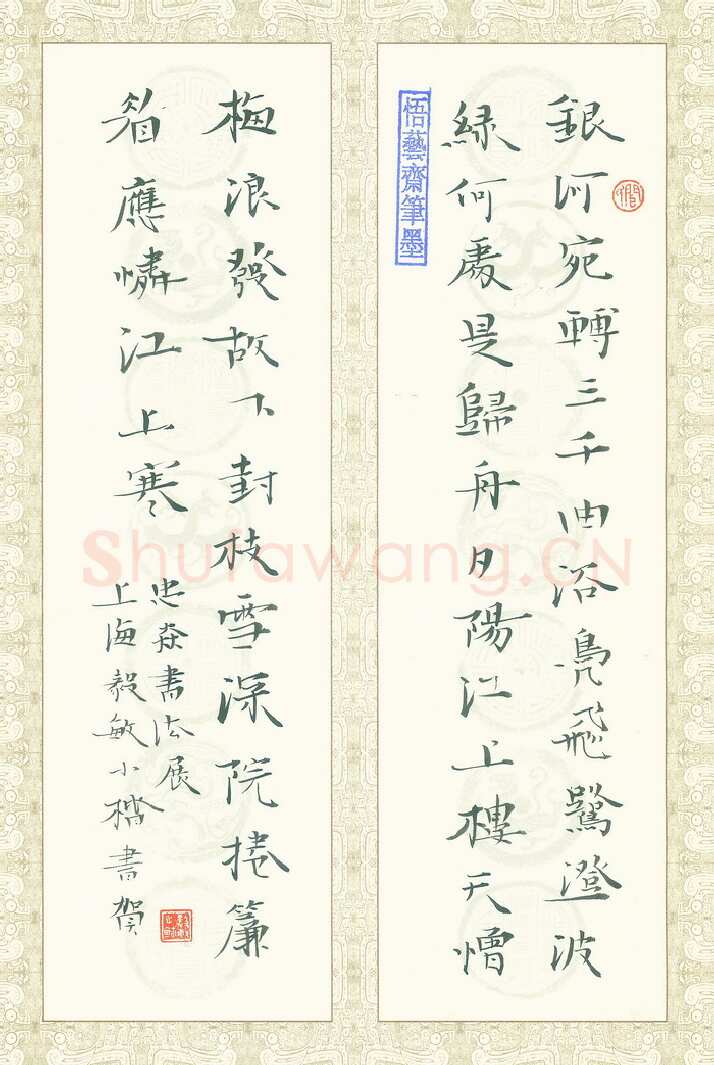 銀河宛轉三千曲浴鳧飛鷺澄波
緑何處是歸舟夕陽江上樓天憎
悟藝齋筆墨
梅浪發故下封枝雪深院捲簾
看應憐江上寒
忠焱書法展
上海毅敏小橋書賀
Shufawang.CN